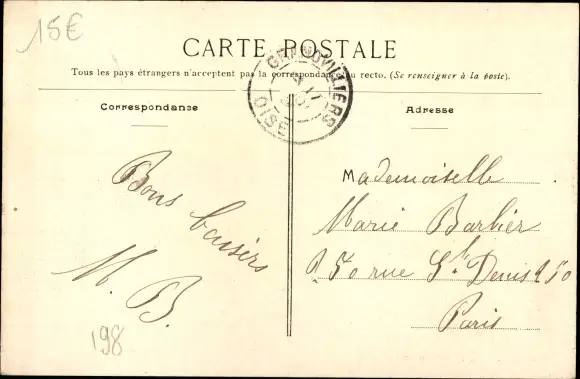 15€
CARTE POSTALE
Tous les pays étrangers n'acceptent pas la correspondance au recto. (Se renseigner à la poste).
GRANDVILLIERS
OISE
Correspondanse
Adresse
Bons baisers
M. B.
198
Mademoiselle
Marie Barbier
150 rue St Denis 150
Paris